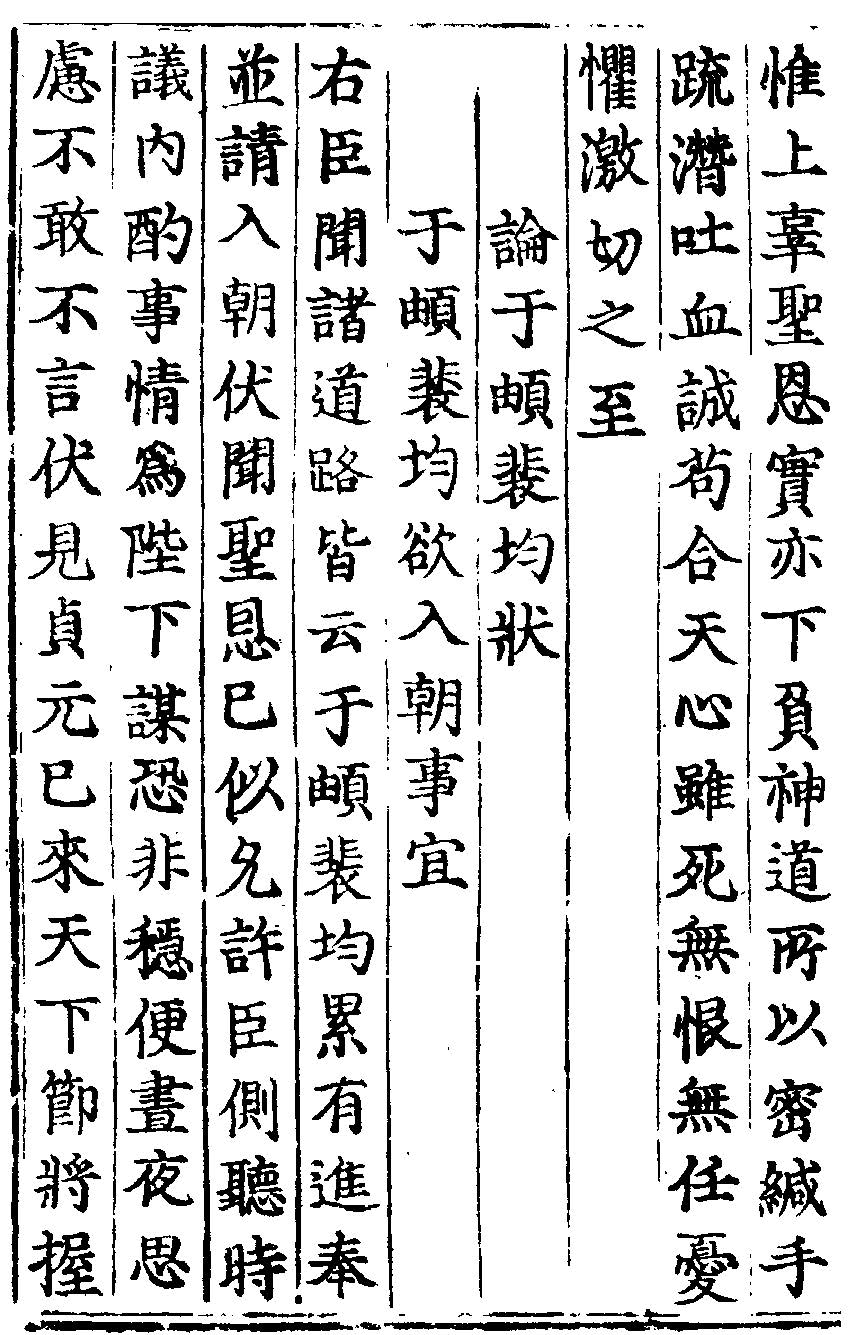 惟上辜聖恩實亦下負神道所以密緘手
䟽潛吐血誠苟合天心雖死無恨無任憂
懼激切之至
論于頔裴均狀
于頔裴均欲入朝事宜
右臣聞諸道路皆云于頔裴均累有進奉
並請入朝伏聞聖恩已似允許臣側聽時
議內酌事情爲陛下謀恐非穩便晝夜思
慮不敢不言伏見貞元已來天下節將握